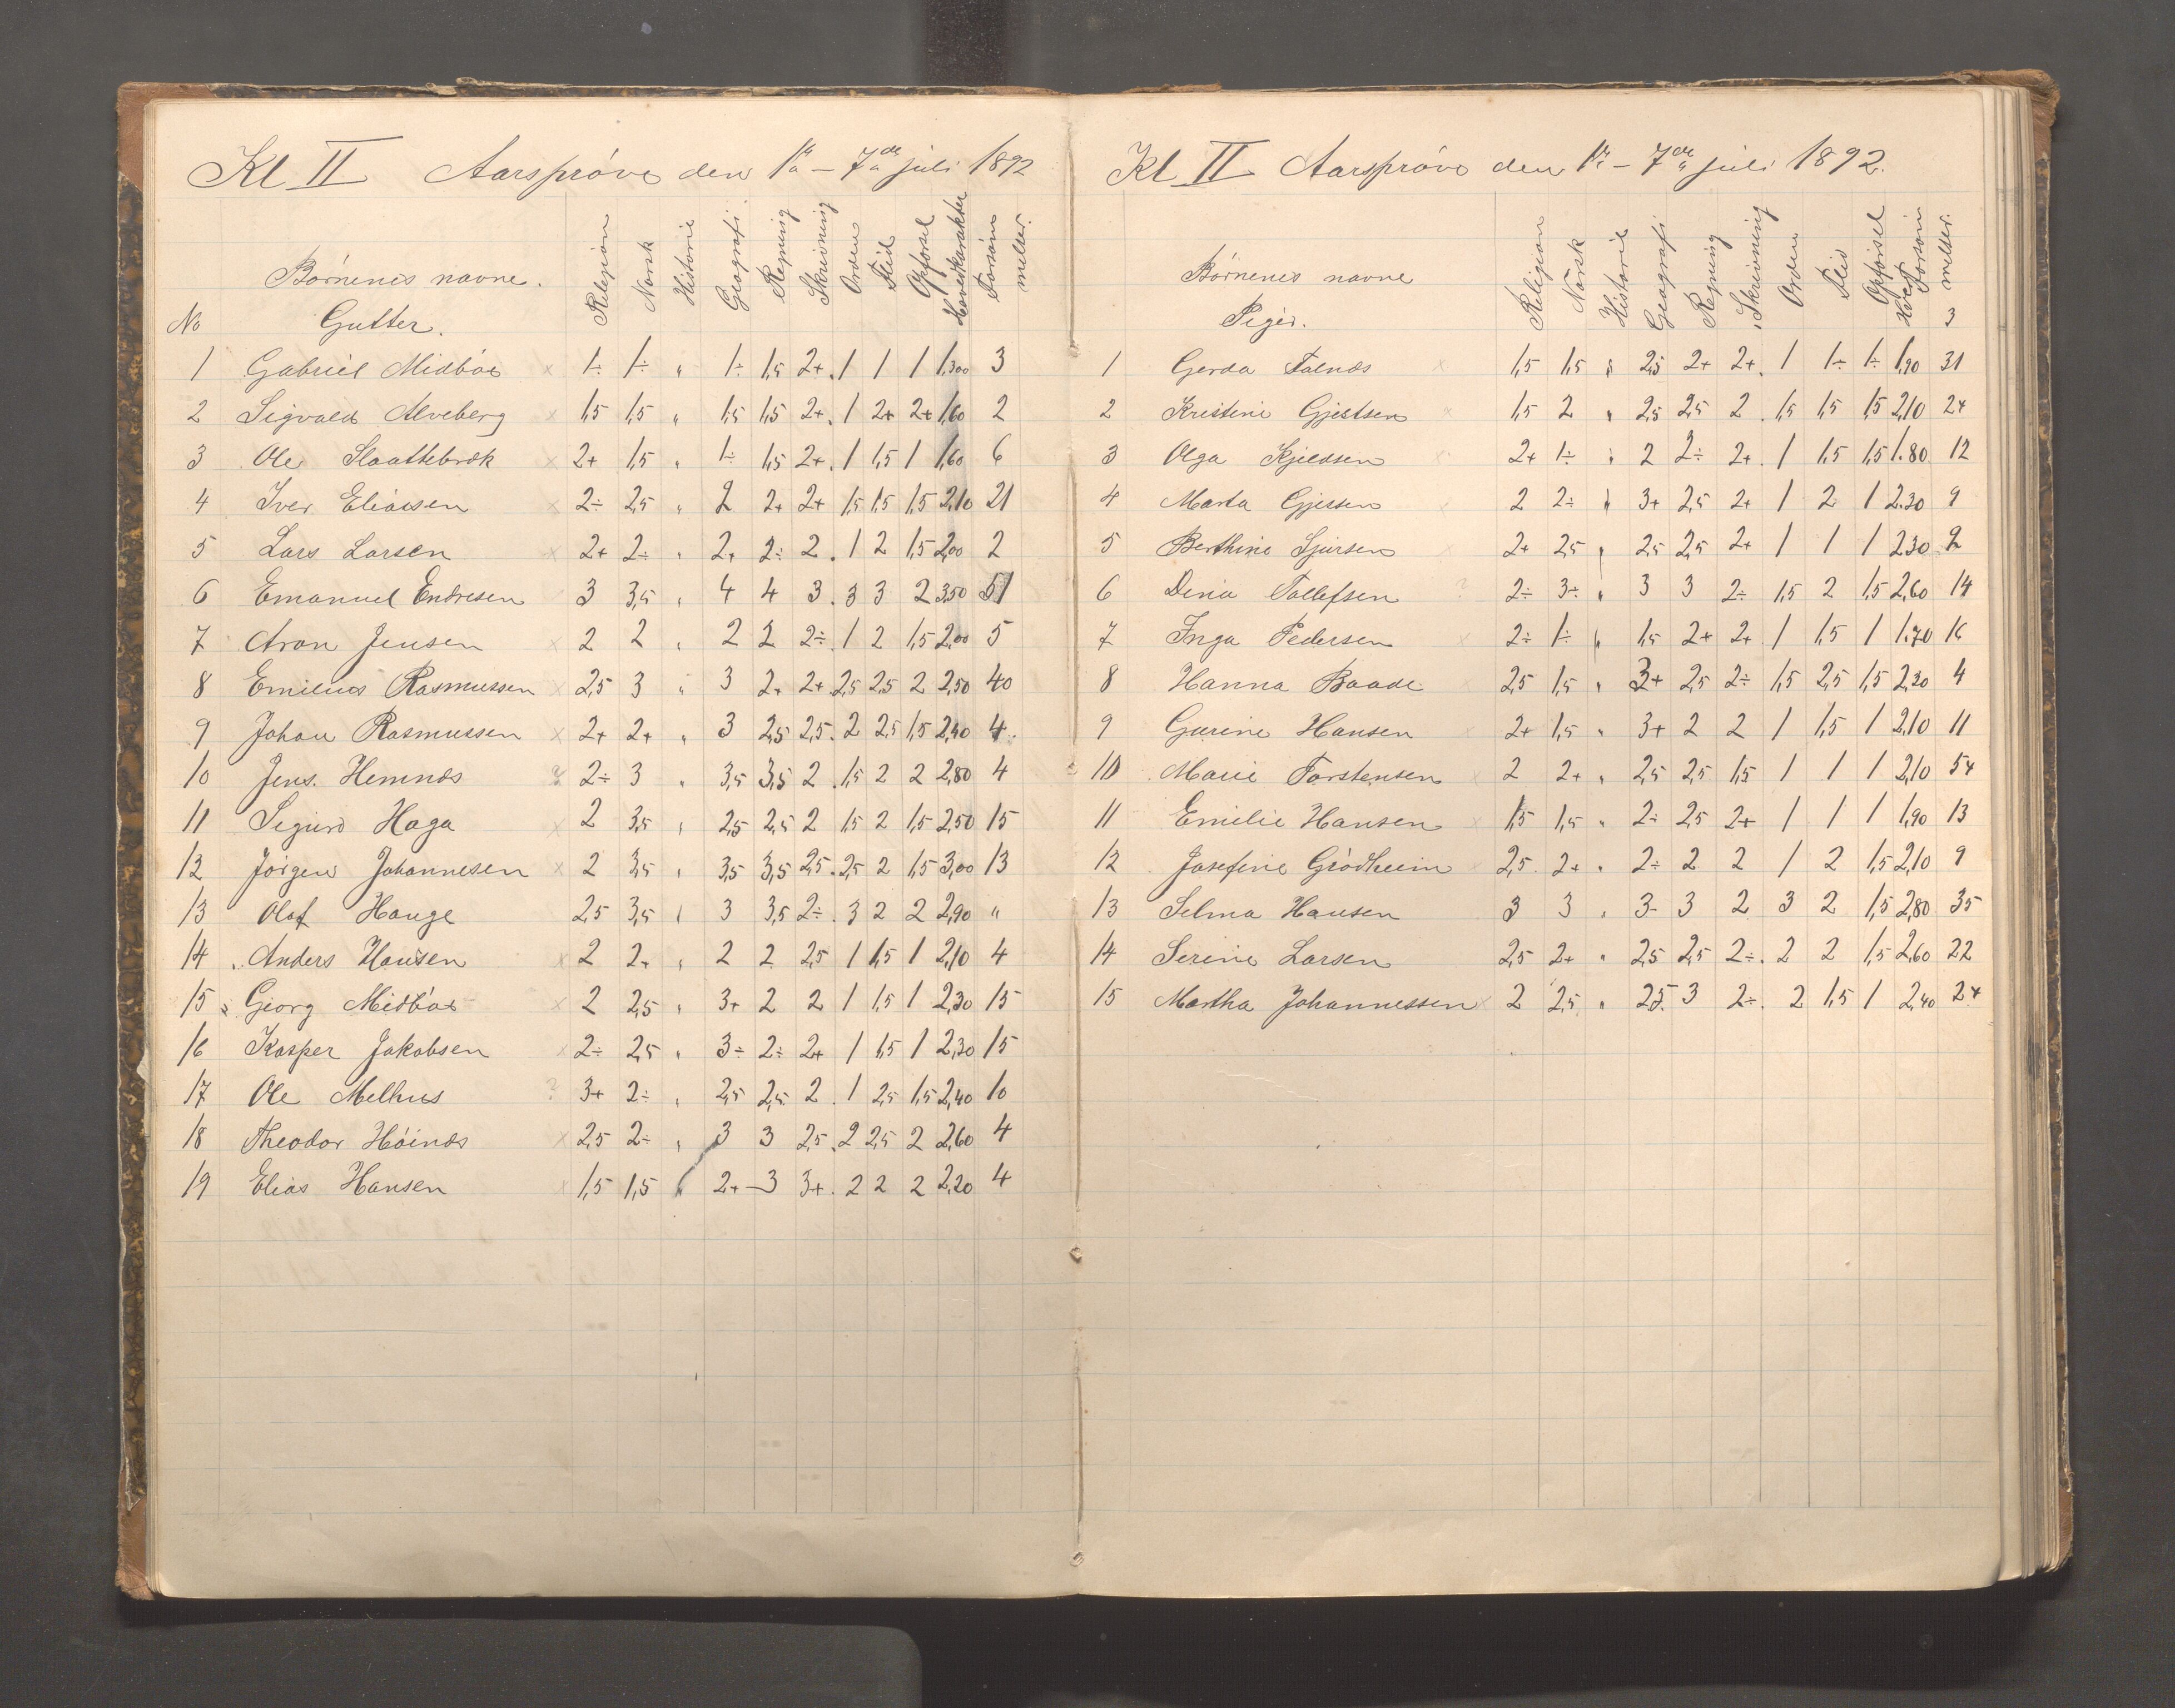 Kl II Aarsprøve den 1ste – 7de juli 1892
Børnenes navne.
Religion Norsk Historie Geografi Regning Skrivning Orden Flid Opførsel Hovedkarakter Forsømmelser.
No Gutter.
1 Gabriel Midbøe x 1÷ 1÷ " 1÷ 1,5 2+ 1 1 1 1,300 3
2 Sigvald Alveberg x 1,5 1,5 " 1,5 1,5 2+ 1 2+ 2+ 1,60 2
3 Ole Slaattebræk x 2+ 1,5 " 1÷ 1,5 2+ 1 1,5 1 1,60 6
4 Iver Eliasen x 2÷ 2,5 " 2 2+ 2+ 1,5 1,5 1,5 2,10 21
5 Lars Larsen x 2+ 2÷ " 2+ 2÷ 2 1 2 1,5 2,00 2
6 Emanuel Endresen 3 3,5 " 4 4 3 3 3 2 3,50 51
7 Aron Jensen x 2 2 " 2 2 2÷ 1 2 1,5 2,00 5
8 Emilius Rasmussen x 2,5 3 " 3 2+ 2+ 2,5 2,5 2 2,50 40
9 Johan Rasmussen x 2+ 2+ " 3 2,5 2,5 2 2,5 1,5 2,40 4
10 Jens Hemnæs ? 2÷ 3 " 3,5 3,5 2 1,5 2 2 2,80 4
11 Sigurd Haga x 2 3,5 " 2,5 2,5 2 1,5 2 1,5 2,50 15
12 Jørgen Johannesen x 2 3,5 " 3,5 3,5 2,5 2,5 2 1,5 3,00 13
13 Olaf Hauge 2,5 3,5 " 3 3,5 2÷ 3 2 2 2,90 "
14 Anders Hansen x 2 2+ " 2 2 2,5 1 1,5 1 2,10 4
15 Georg Midbøe x 2 2,5 " 3+ 2 2 1 1,5 1 2,30 15
16 Kasper Jakobsen x 2÷ 2,5 " 3÷ 2÷ 2+ 1 1,5 1 2,30 15
17 Ole Melhus ? 3+ 2÷ " 2,5 2,5 2 1 2,5 1,5 2,40 10
18 Theodor Høinæs x 2,5 2÷ " 3 3 2,5 2 2,5 2 2,60 4
19 Elias Hansen x 1,5 1,5 " 2+ 3 3+ 2 2 2 2,20 4
Kl II Aarsprøve den 1ste – 7de juli 1892.
Børnenes navne
Religion Norsk Historie Geografi Regning Skrivning Orden Flid Opførsel Forsømmelser.
Piger. 3
1 Gerda Falnæs x 1,5 1,5 " 2,5 2+ 2+ 1 1÷ 1÷ 1,90 31
2 Kristine Gjertsen x 1,5 2 " 2,5 2,5 2 1,5 1,5 1,5 2,10 24
3 Olga Kjeldsen 2+ 1÷ " 2 2÷ 2+ 1 1,5 1,5 1.80 12
4 Marta Gjessen 2 2÷ " 3+ 2,5 2+ 1 2 1 2.30 9
5 Berthine Sjursen 2+ 2,5 " 2,5 2,5 2+ 1 1 1 2.30 2
6 Dina Tollefsen ? 2÷ 3÷ " 3 3 2÷ 1,5 2 1,5 2,60 14
7 Inga Pedersen x 2÷ 1÷ " 1,5 2+ 2+ 1 1,5 1 1.70 16
8 Hanna Baade 2,5 1,5 " 3+ 2,5 2÷ 1,5 2,5 1,5 2,30 4
9 Gurine Hansen 2+ 1,5 " 3+ 2 2 1 1,5 1 2,10 11
10 Marie Torstensen x 2 2+ " 2,5 2,5 1,5 1 1 1 2,10 54
11 Emilie Hansen x 1,5 1,5 " 2÷ 2,5 2+ 1 1 1 1,90 13
12 Josefine Grødheim x 2,5 2+ " 2÷ 2 2 1 2 1,5 2,10 9
13 Selma Hansen 3 3 " 3- 3 2 3 2 1,5 2,80 35
14 Serine Larsen 2,5 2+ " 2,5 2,5 2÷ 2 2 1,5 2,60 22
15 Martha Johannessen x 2 2,5 " 2,5 3 2÷ 2 1,5 1 2,40 24